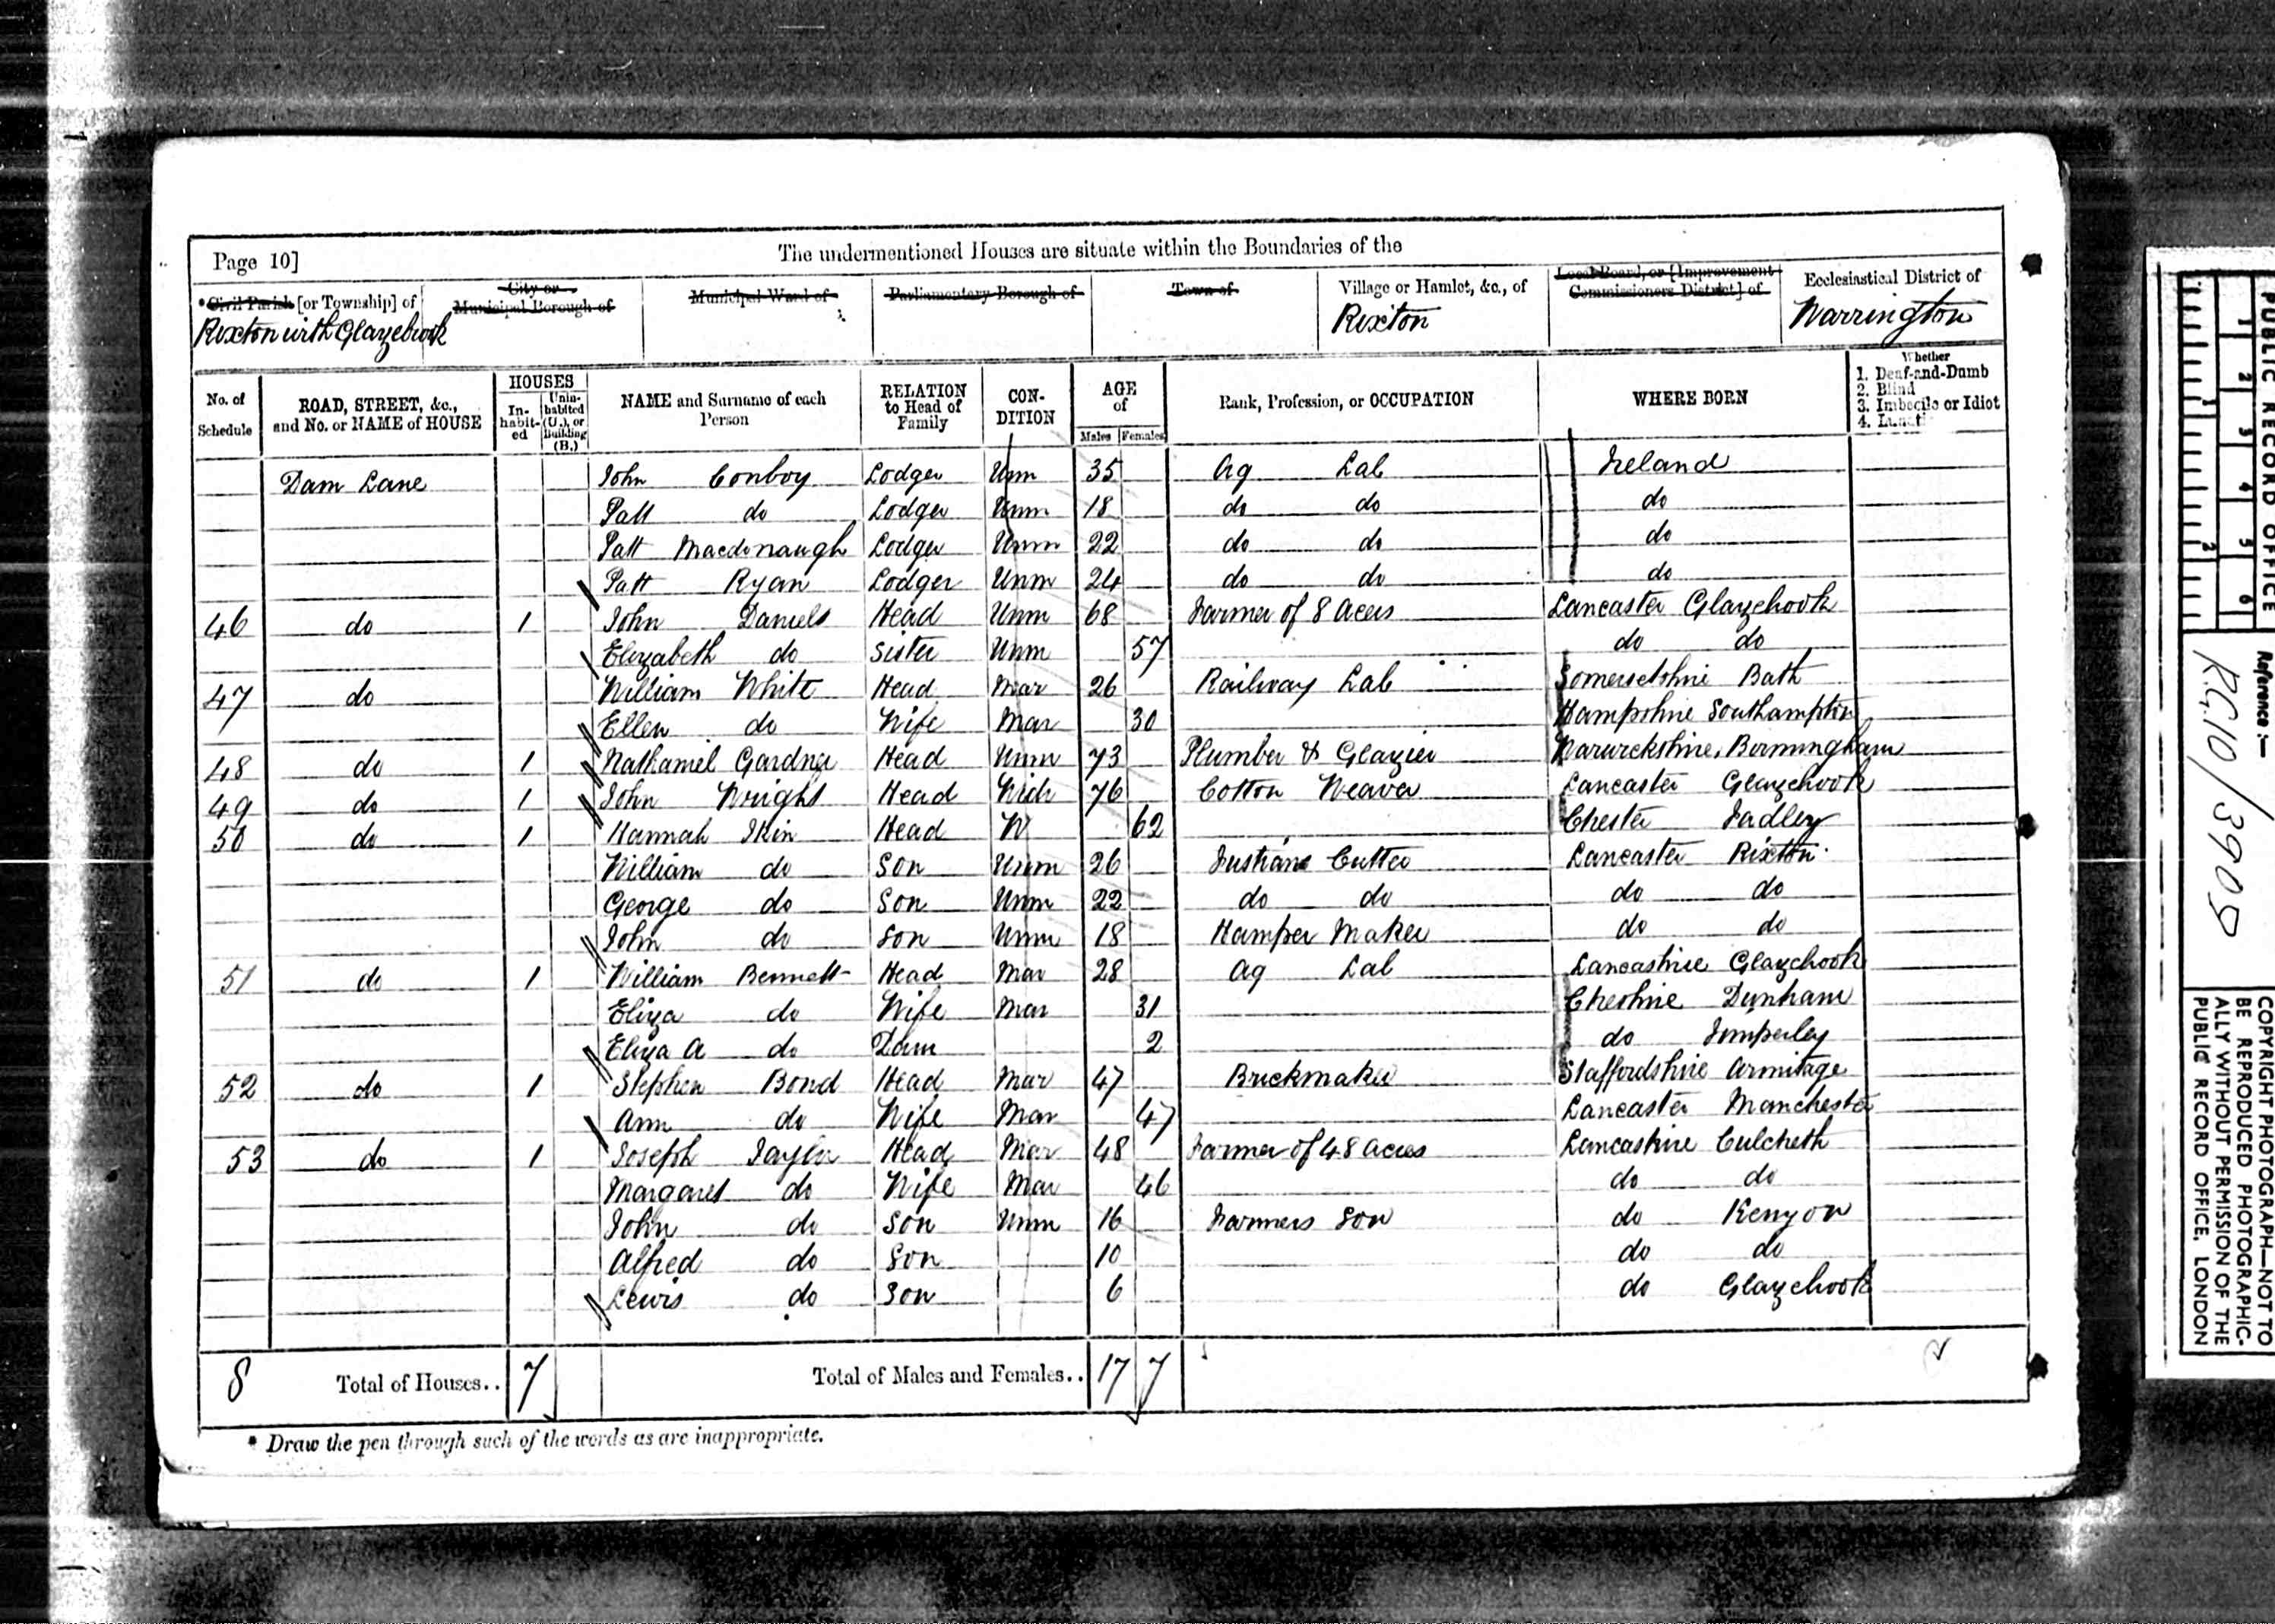 Page 10]
The undermentioned Houses are situate within the Boundaries of the
*Civil Parish [or Township] of
City or Municipal Borough of
Municipal Ward of
Parliamentary Borough of
Town of
Village or Hamlet, &c., of
Local Board, or [Improvement Commissioners District] of
Ecclesiastical District of
Rixton with Glazebrook
Rixton
Warrington
No. of Schedule
ROAD, STREET, &c., and No. or NAME of HOUSE
HOUSES
Inhabited
Uninhabited (U.), or Building (B.)
NAME and Surname of each Person
RELATION to Head of Family
CONDITION
AGE of
Males Females
Rank, Profession, or OCCUPATION
WHERE BORN
Whether
1. Deaf-and-Dumb
2. Blind
3. Imbecile or Idiot
4. Lunatic
Dam Lane John Conboy Lodger Unm 35 Ag Lab Ireland
Patt do Lodger Unm 18 do do do
Patt Macdonaugh Lodger Unm 22 do do do
Patt Ryan Lodger Unm 24 do do do
46 do 1 John Daniels Head Unm 68 Farmer of 8 Acers Lancaster Glazebrook
Elizabeth do Sister Unm 57 do do
47 do William White Head Mar 26 Railway Lab Somersetshire Bath
Ellen do Wife Mar 30 Hampshire Southampton
48 do 1 Nathaniel Gardner Head Unm 73 Plumber & Glazier Warwickshire, Birmingham
49 do 1 John Wright Head Wid 76 Cotton Weaver Lancaster Glazebrook
50 do 1 Hannah Ikin Head W 62 Chester
William do Son Unm 26 Fustian Cutter Lancaster Rixton
George do Son Unm 22 do do do do
John do Son Unm 18 Hamper Maker do do
51 do 1 William Bennett Head Mar 28 Ag Lab Lancashire Glazebrook
Eliza do Wife Mar 31 Cheshire Dunham
Eliza A do Daur 2 do Timperley
52 do 1 Stephen Bond Head Mar 47 Brickmaker Staffordshire Armitage
Ann do Wife Mar 47 Lancaster Manchester
53 do 1 Joseph Taylor Head Mar 48 Farmer of 48 Acres Lancashire Culcheth
Margaret do Wife Mar 46 do do
John do Son Unm 16 Farmers Son do Kenyon
Alfred do Son 10 do do
Lewis do Son 6 do Glazebrook
8 Total of Houses.. 7 Total of Males and Females.. 17 7
* Draw the pen through such of the words as are inappropriate.
PUBLIC RECORD OFFICE
1 2 3 4 5 6
1 2
Reference:—
RG.10/3909
COPYRIGHT PHOTOGRAPH—NOT TO
BE REPRODUCED PHOTOGRAPHIC-
ALLY WITHOUT PERMISSION OF THE
PUBLIC RECORD OFFICE, LONDON